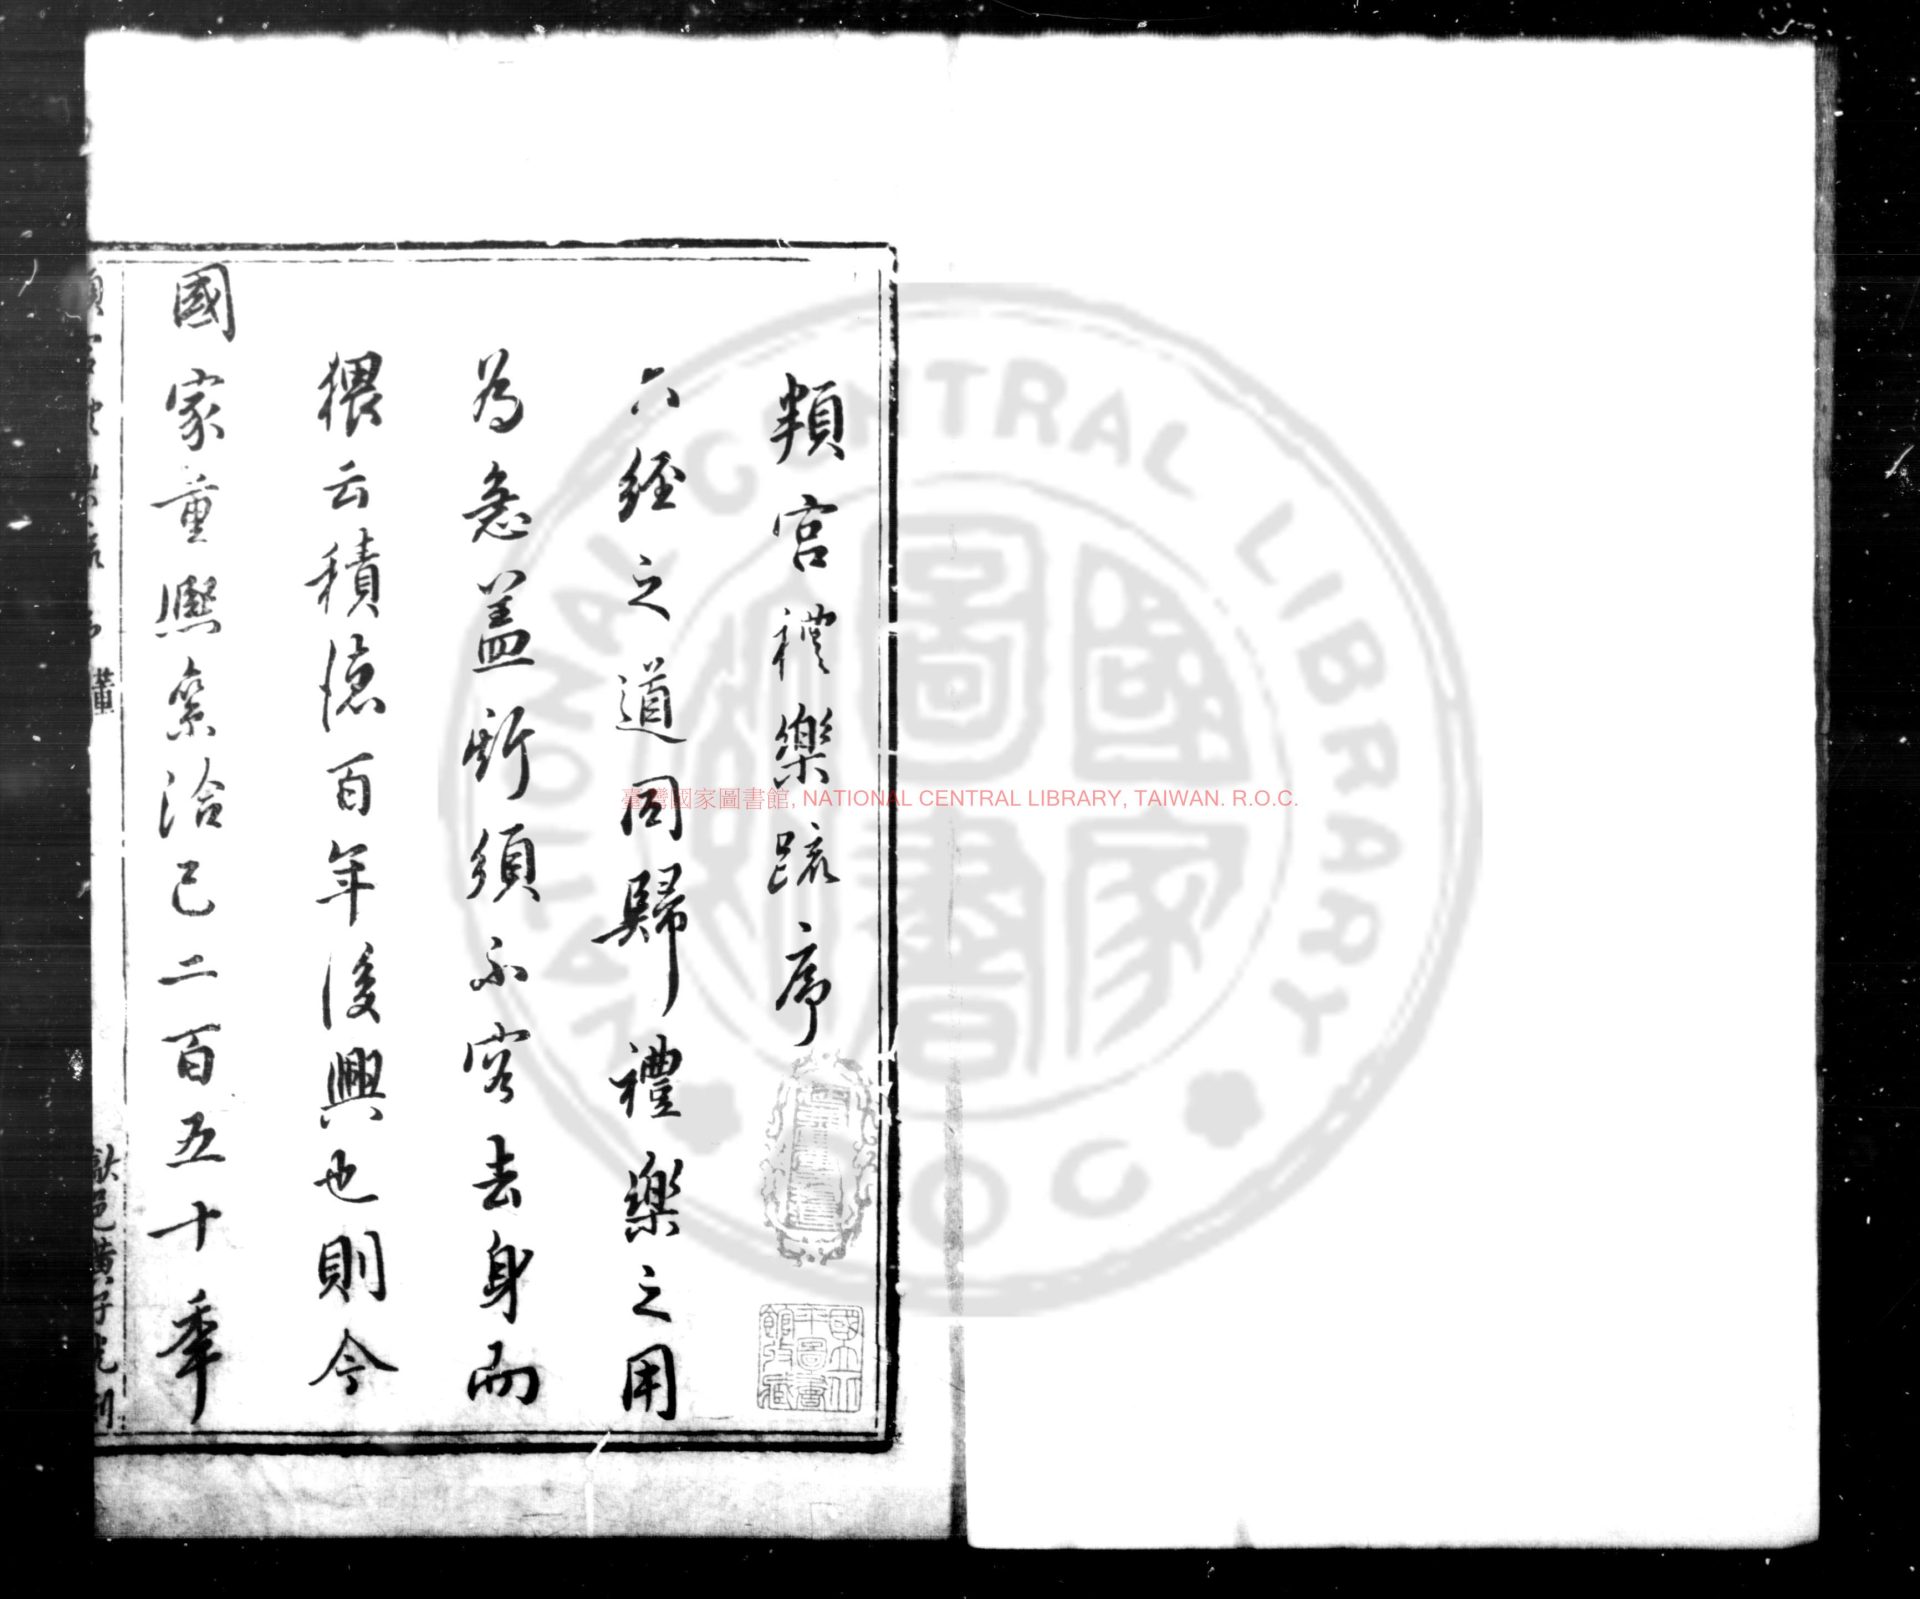 頖宮禮樂疏序
六經之道同歸禮樂之用
為急盖斯須不容去身而
猥云積德百年後興也則今
國家重熙絫洽已二百五十年
董
歙邑黃
國立中
央圖書
館收藏
臺灣國家圖書館, NATIONAL CENTRAL LIBRARY, TAIWAN. R.O.C.
NATIONAL CENTRAL LIBRARY
R.O.C.
國家圖書